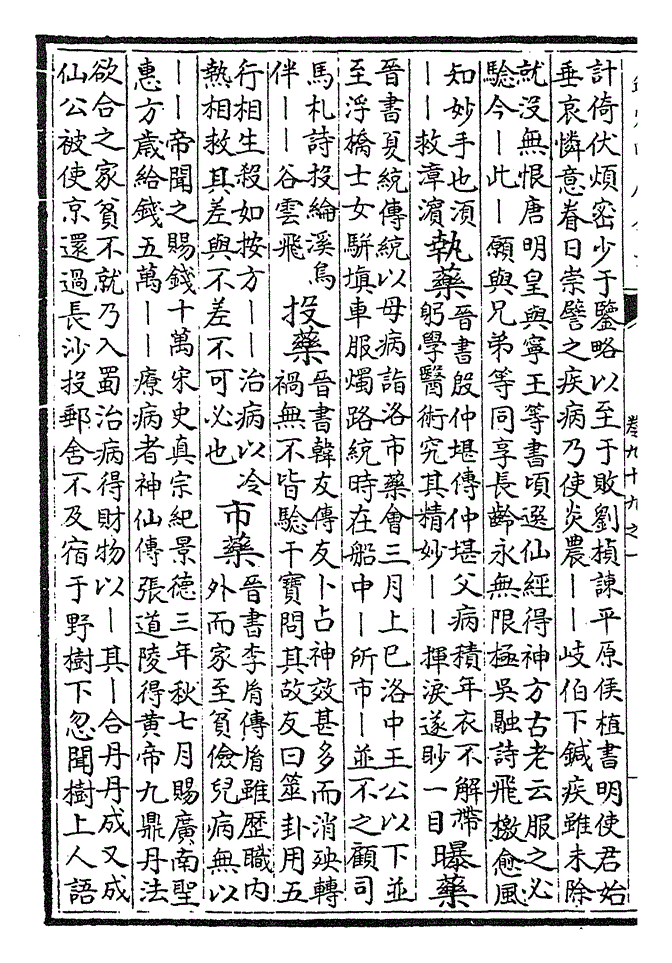 計倚伏煩密少于鑒略以至于敗劉楨諫平原侯植書明使君始
垂哀憐意眷日崇譬之疾病乃使炎農——岐伯下鍼疾雖未除
就沒無恨唐明皇與寧王等書頃選仙經得神方古老云服之必
驗今—此—願與兄弟等同享長齡永無限極吳融詩飛檄愈風
知妙手也須
——救漳濱
執藥
晉書殷仲堪傳仲堪父病積年衣不解帶
躬學醫術究其精妙——揮淚遂眇一目
曝藥
晉書夏統傳統以母病詣洛市藥會三月上巳洛中王公以下並
至浮橋士女駢填車服燭路統時在船中—所市—並不之顧司
馬札詩投綸溪鳥
伴——谷雲飛
投藥
晉書韓友傳友卜占神效甚多而消殃轉
禍無不皆驗干寶問其故友曰筮卦用五
行相生殺如按方——治病以冷
熱相救其差與不差不可必也
市藥
晉書李胤傳胤雖歷職內
外而家至貧儉兒病無以
——帝聞之賜錢十萬宋史真宗紀景德三年秋七月賜廣南聖
惠方歲給錢五萬——療病者神仙傳張道陵得黃帝九鼎丹法
欲合之家貧不就乃入蜀治病得財物以—其—合丹丹成又成
仙公被使京還過長沙投郵舍不及宿于野樹下忽聞樹上人語
卷九十九之一